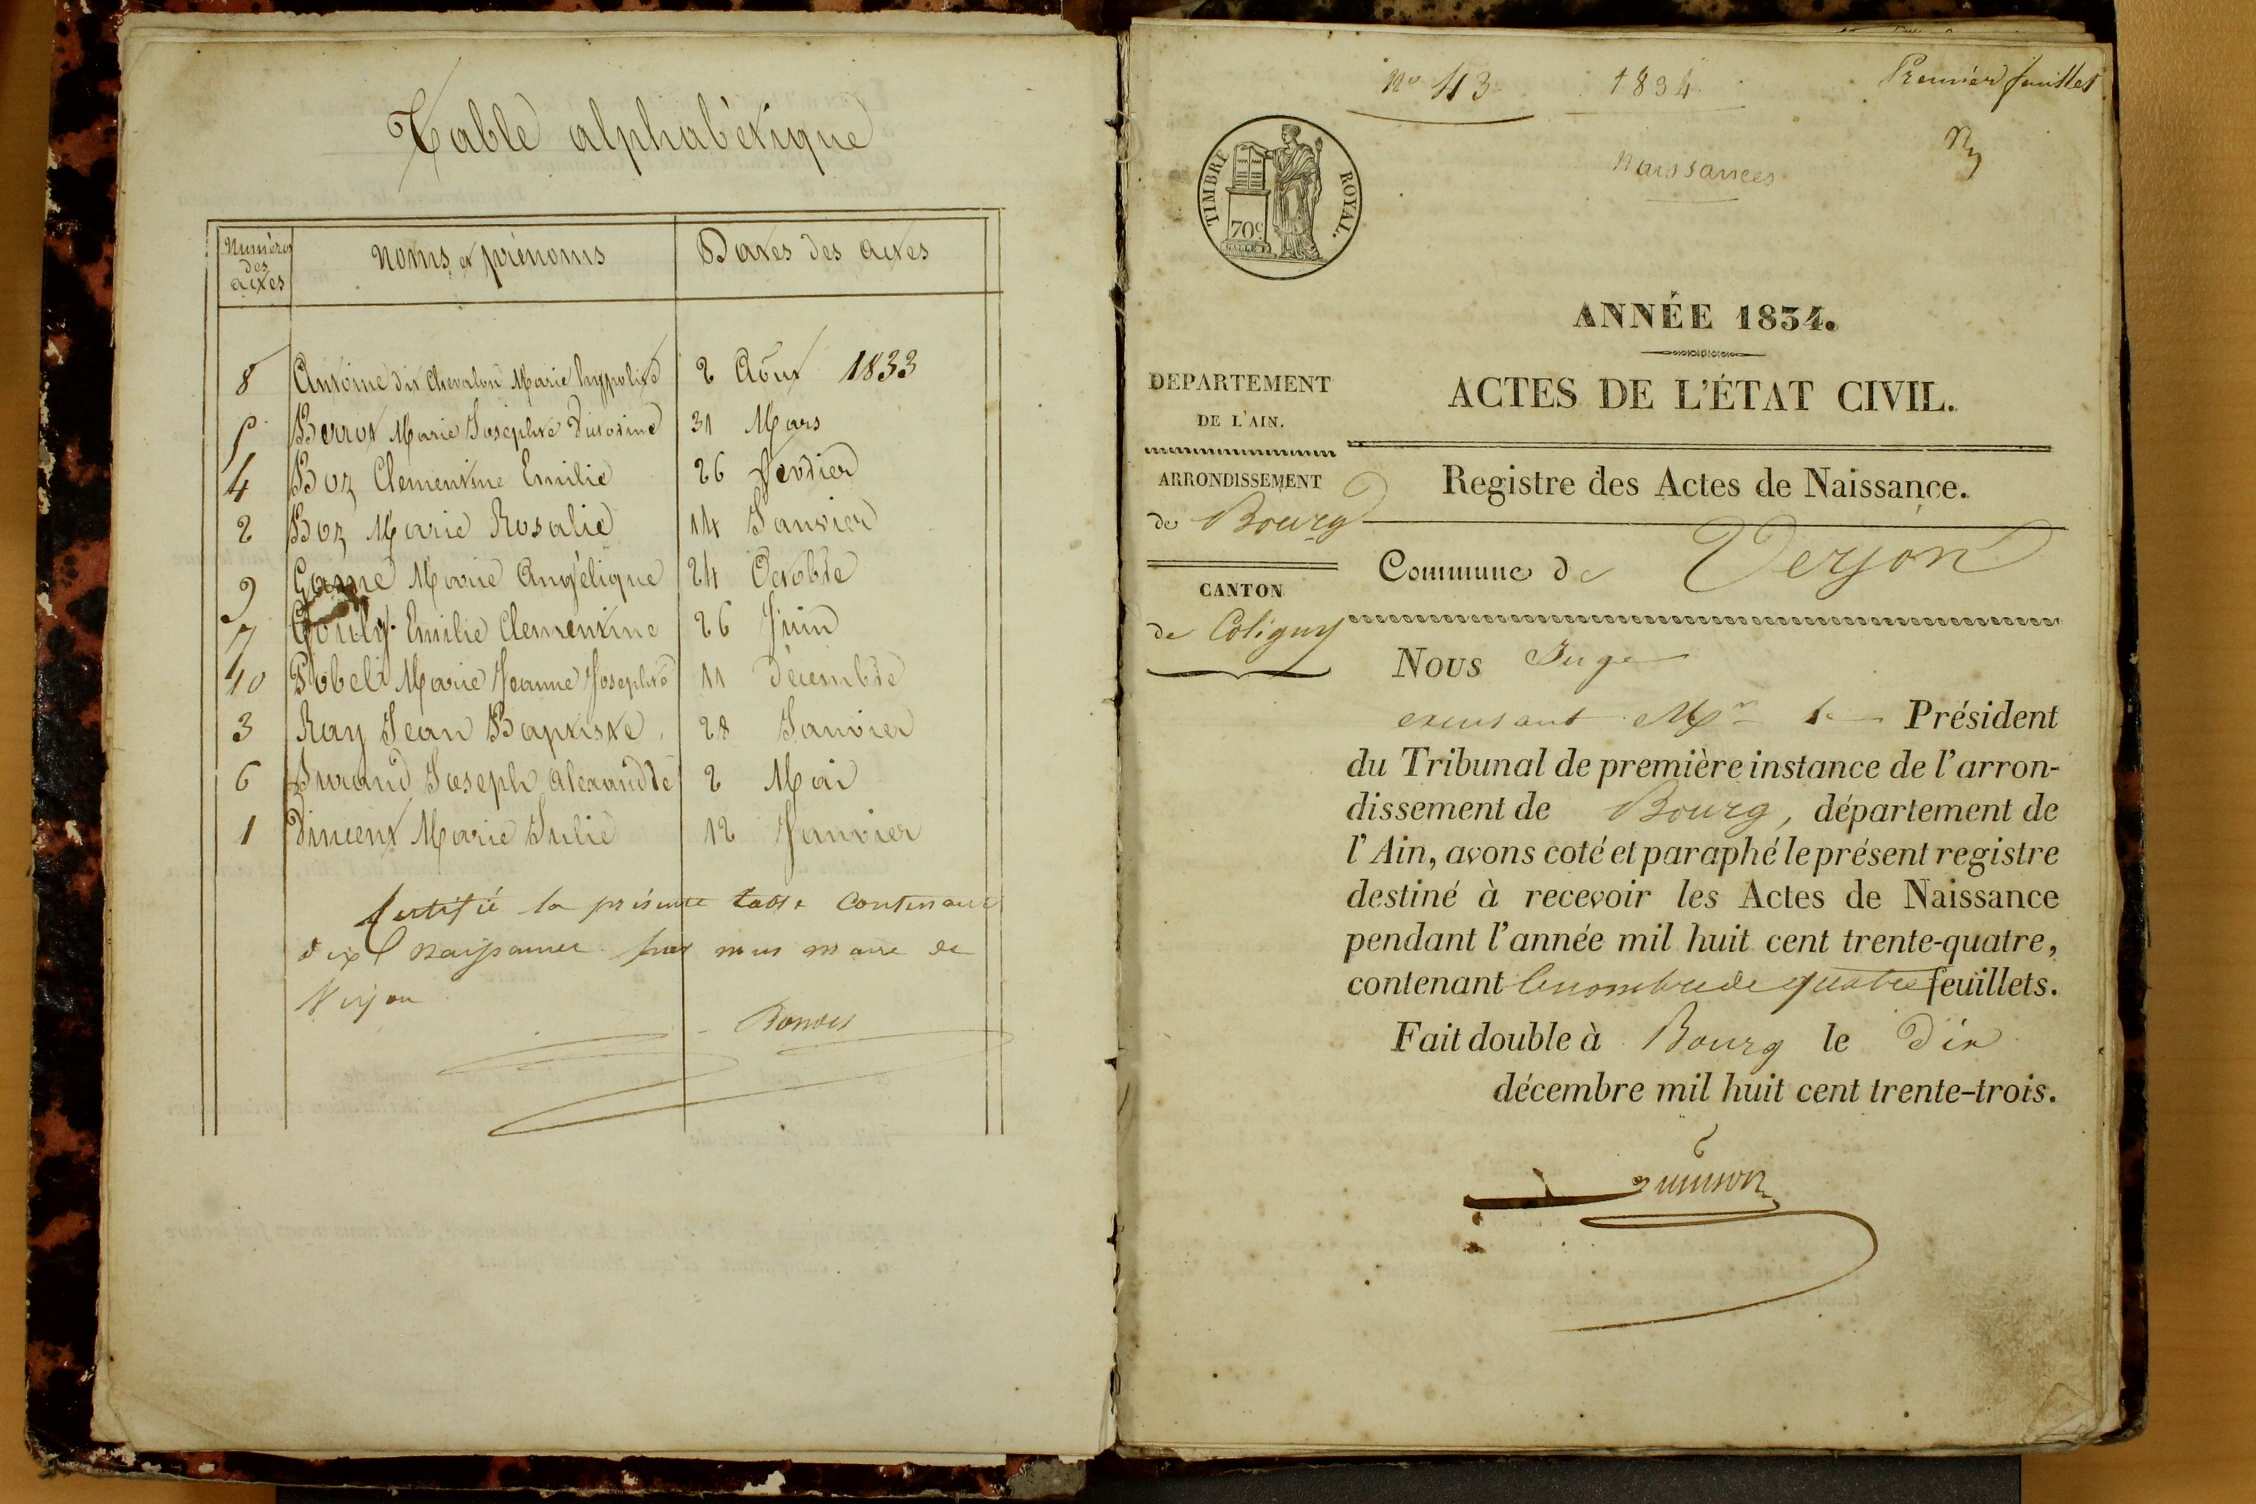 Table alphabétique
Numéros des actes
Noms et prénoms
Dates des actes
8 Antoine dit Chevalon Marie hyppolite 2 Août 1833
5 Berrot Marie Josephte 31 Mars
4 Boz Clementine Emilie 26 fevrier
2 Boz Marie Rosalie 14 Janvier
9 Game Marie Angélique 24 Octobre
7 Gouly Emilie Clementine 26 Juin
10 Pobel Marie Jeanne Josephte 11 décembre
3 Ray Jean Baptiste 28 Janvier
6 Durand Joseph alexandre 2 Mai
1 Vincent Marie Julie 12 Janvier
Certifié la présente table contenant
dix naissances par nous maire de
Verjon
No 113 1834 Premier feuillet
Naissances
TIMBRE ROYAL.
70c
ANNÉE 1834.
ACTES DE L'ÉTAT CIVIL.
DEPARTEMENT
DE L'AIN.
ARRONDISSEMENT
de Bourg
CANTON
de Coligny
Registre des Actes de Naissance.
Commune de Verjon
Nous Juge
excusant Mr le Président
du Tribunal de première instance de l'arron-
dissement de Bourg, département de
l'Ain, avons coté et paraphé le présent registre
destiné à recevoir les Actes de Naissance
pendant l'année mil huit cent trente-quatre,
contenant le nombre de quatre feuillets.
Fait double à Bourg le dix
décembre mil huit cent trente-trois.